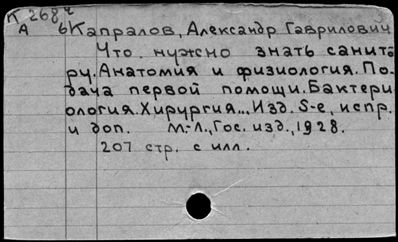 К 268ч
А
6 Капралов, Александр Гаврилович
Что нужно знать санита
ру. Анатомия и физиология. По-
дача первой помощи. Бактери
ология. Хирургия... Изд. 5-е, испр.
и доп. М.-Л., Гос. изд., 1928.
207 стр. с илл.